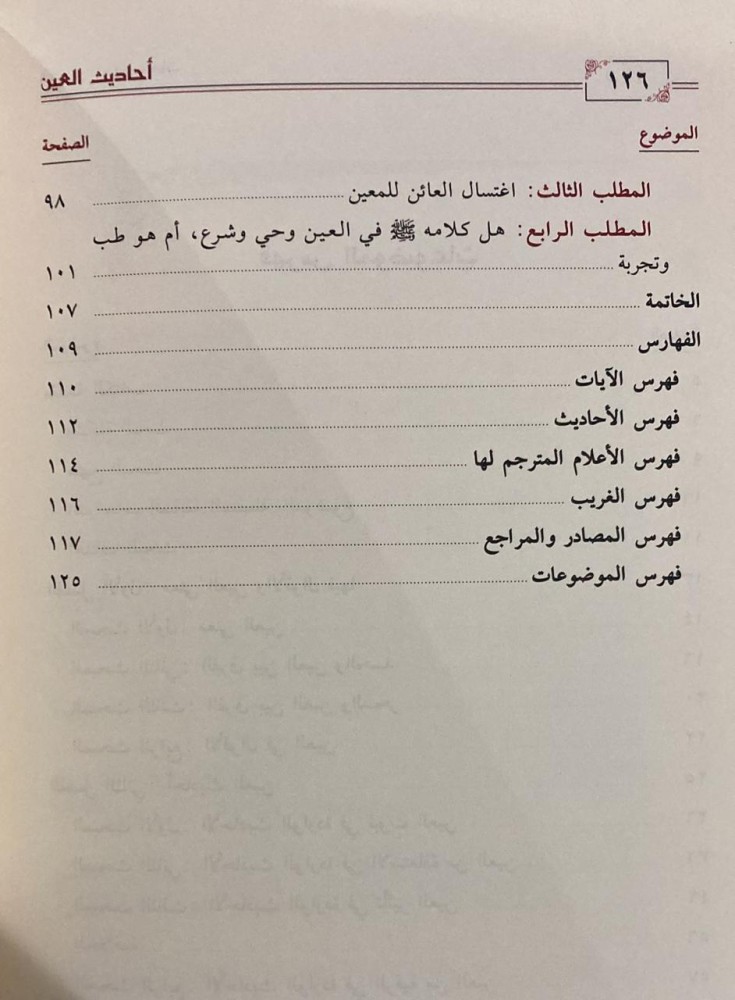 ١٢٦ أحاديث العين
الموضوع الصفحة
المطلب الثالث: اغتسال العائن للمعين ٩٨
المطلب الرابع: هل كلامه ﷺ في العين وحي وشرع، أم هو طب
وتجربة ١٠١
الخاتمة ١٠٧
الفهارس ١٠٩
فهرس الآيات ١١٠
فهرس الأحاديث ١١٢
فهرس الأعلام المترجم لها ١١٤
فهرس الغريب ١١٦
فهرس المصادر والمراجع ١١٧
فهرس الموضوعات ١٢٥